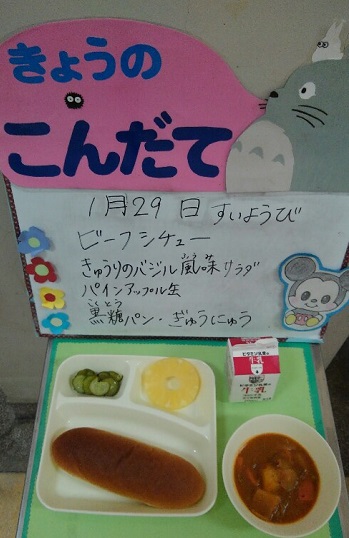 きょうの
こんだて
1月29日 すいようび
ビーフシチュー
きゅうりのバジル風味サラダ
パインアップル缶
黒糖パン・ぎゅうにゅう
牛乳